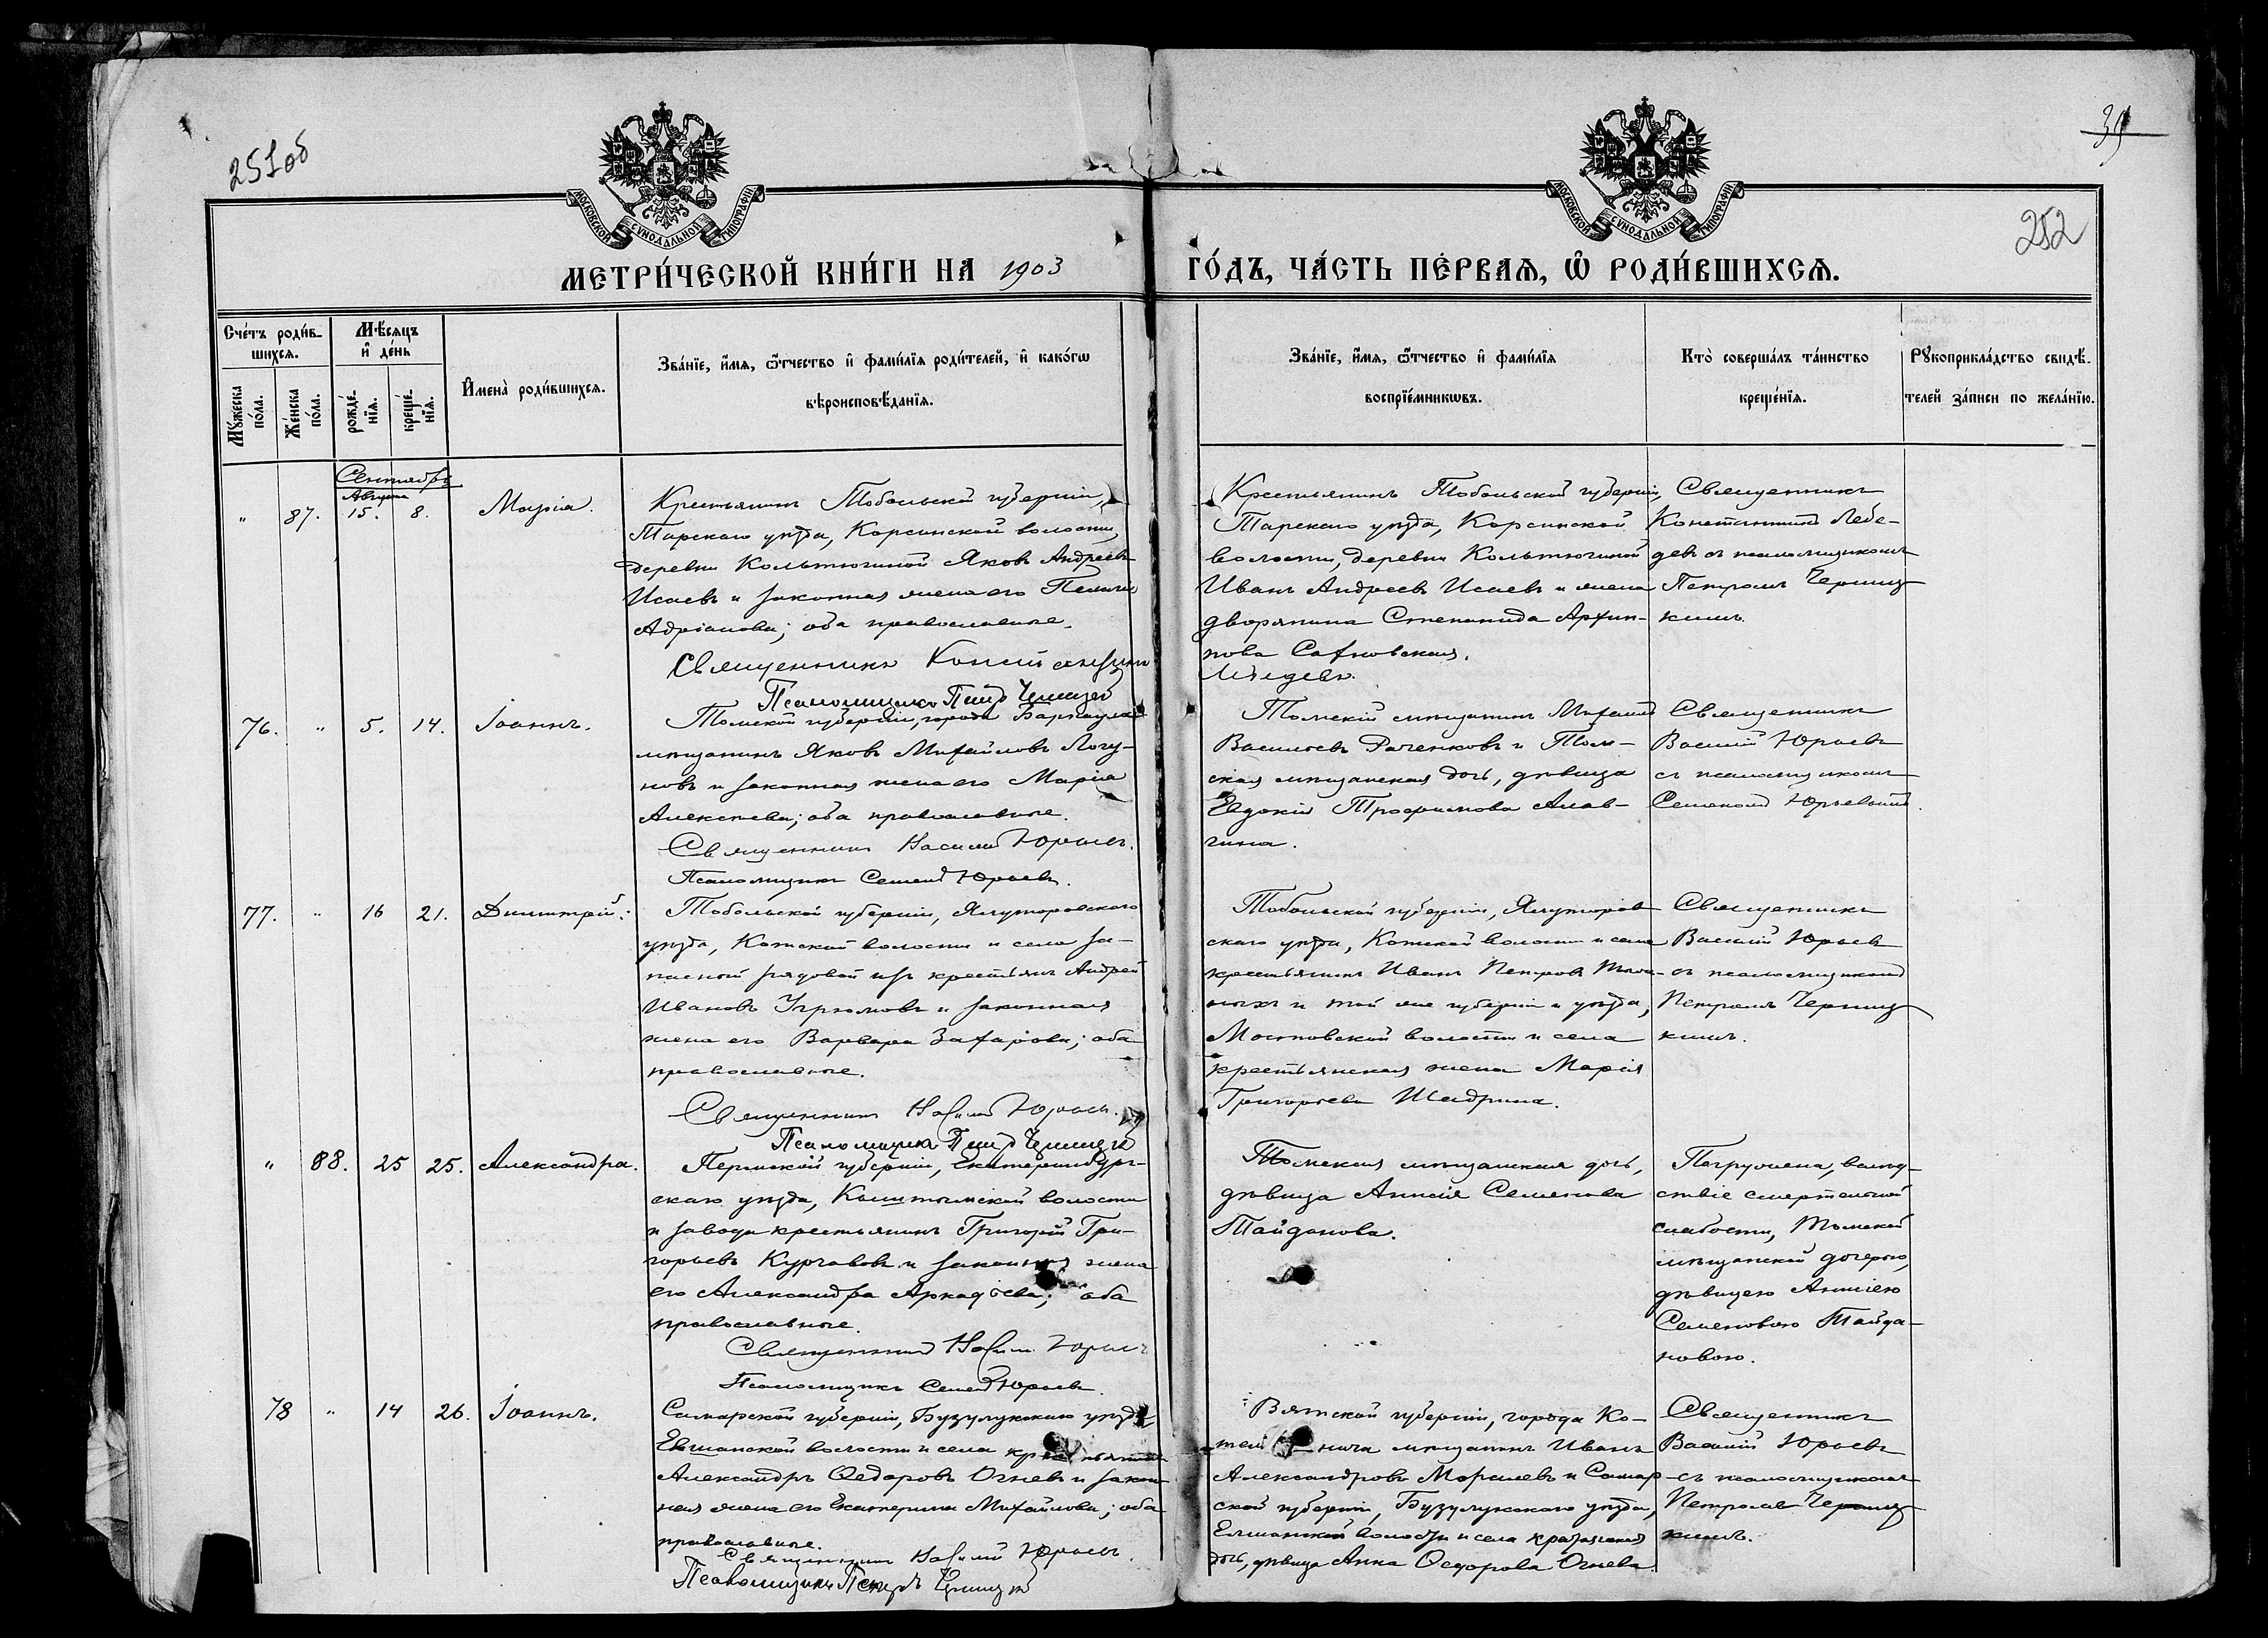 251об
39
252
МОСКОВСКОЙ СѴНОДАЛЬНОЙ ТИПОГРАФІИ
МОСКОВСКОЙ СѴНОДАЛЬНОЙ ТИПОГРАФІИ
МЕТРИ́ЧЕСКОЙ КНИ́ГИ НА 1903
ГО́ДЪ, ЧА́СТЬ ПЕ́РВАЯ, Ѿ РОДИ́ВШИХСЯ.
Сче́тъ роди́в-
шихся.
Мꙋжеска по́ла.
Же́нска по́ла.
Мѣ́сяцъ
и҆ де́нь
рожде́-
нїя.
креще́-
нїя.
И҆мена̀ роди́вшихся.
Зва́нїе, и҆́мя, ѻ҆́тчество и҆ фами́лїя роди́телей, и҆ како́гѡ
вѣроисповѣ́данїя.
Зва́нїе, и҆́мя, ѻ҆́тчество и҆ фами́лїя
воспрїе́мникѡвъ.
Кто̀ соверша́лъ та́инство
креще́нїя.
Рꙋкоприкла́дство свидѣ́-
телей за́писи по жела́нїю.
Сентябрь
Августа
" 87. 15. 8. Марія.
Крестьянинъ Тобольской губерніи,
Тарскаго уѣзда, Корсинской волости,
деревни Кольтюгиной Яковъ Андреевъ
Исаевъ и законная жена его Пелагія
Адріанова; оба православные.
Священникъ Константинъ
Псаломщикъ Петръ
Крестьянинъ Тобольской губерніи,
Тарскаго уѣзда, Корсинской
волости, деревни Кольтюгиной
Иванъ Андреевъ Исаевъ и жена
дворянина Степанида Архип-
пова
Лебедевъ.
Священникъ
Константинъ Лебе-
девъ съ псаломщикомъ
Петромъ Черниц-
кимъ.
76. " 5. 14. Іоаннъ.
Томской губерніи, города Барнаула
мѣщанинъ Яковъ Михайловъ Логу-
новъ и законная жена его Марія
Алексѣева; оба православные.
Священникъ Василій Юрьевъ.
Псаломщикъ Семенъ Юрьевъ.
Томскій мѣщанинъ Михаилъ
Васильевъ и Том-
ская мѣщанская дочь, дѣвица
Евдокія Трофимова Алав-
гина.
Священникъ
Василій Юрьевъ
съ псаломщикомъ
Семеномъ Юрьевымъ.
77. " 16 21. Димитрій.
Тобольской губерніи, Ялуторовскаго
уѣзда, Коткской волости и села за-
пасной рядовой изъ крестьянъ Андрей
Ивановъ Угрюмовъ и законная
жена его Варвара Захарова; оба
православные.
Священникъ Василій Юрьевъ.
Псаломщикъ Петръ
Тобольской губерніи, Ялуторов-
скаго уѣзда, волости и села
крестьянинъ Иванъ Петровъ
и той же губерніи и уѣзда,
Мостовской волости и села
крестьянская жена Марія
Григорьева Шадрина.
Священникъ
Василій Юрьевъ
съ псаломщикомъ
Петромъ Черниц-
кимъ.
" 88. 25 25. Александра.
Пермской губерніи, Екатеринбург-
скаго уѣзда, Кыштымской волости
и завода крестьянинъ Григорій Гри-
горьевъ Курчавовъ и законная жена
его Александра Аркадьева; оба
православные.
Священникъ Василій Юрьевъ
Псаломщикъ Семенъ Юрьевъ.
Томская мѣщанская дочь,
дѣвица Анисія Семенова
Тайданова.
Погружена, вслѣд-
ствіе смертельной
слабости, Томской
мѣщанской дочерью,
дѣвицею Анисіею
Семеновою Тайда-
новою.
78 " 14 26. Іоаннъ.
Самарской губерніи, Бузулукскаго уѣзда
Елшанской волости и села крестьянинъ
Александръ Ѳедоровъ Огневъ и закон-
ная жена его Екатерина Михайлова; оба
православные.
Священникъ Василій Юрьевъ.
Псаломщикъ Петръ
Вятской губерніи, города Ко-
тельнича мѣщанинъ Иванъ
Александровъ и Самар-
ской губерніи, Бузулукскаго уѣзда,
Елшанской волости и села крестьянская
дочь, дѣвица Анна Ѳедорова Огнева.
Священникъ
Василій Юрьевъ
съ псаломщикомъ
Петромъ Черниц-
кимъ.